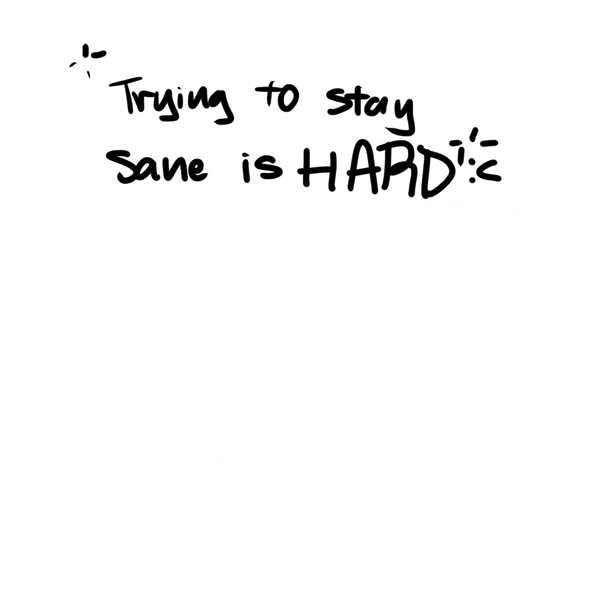 Trying to stay
sane is HARD :c